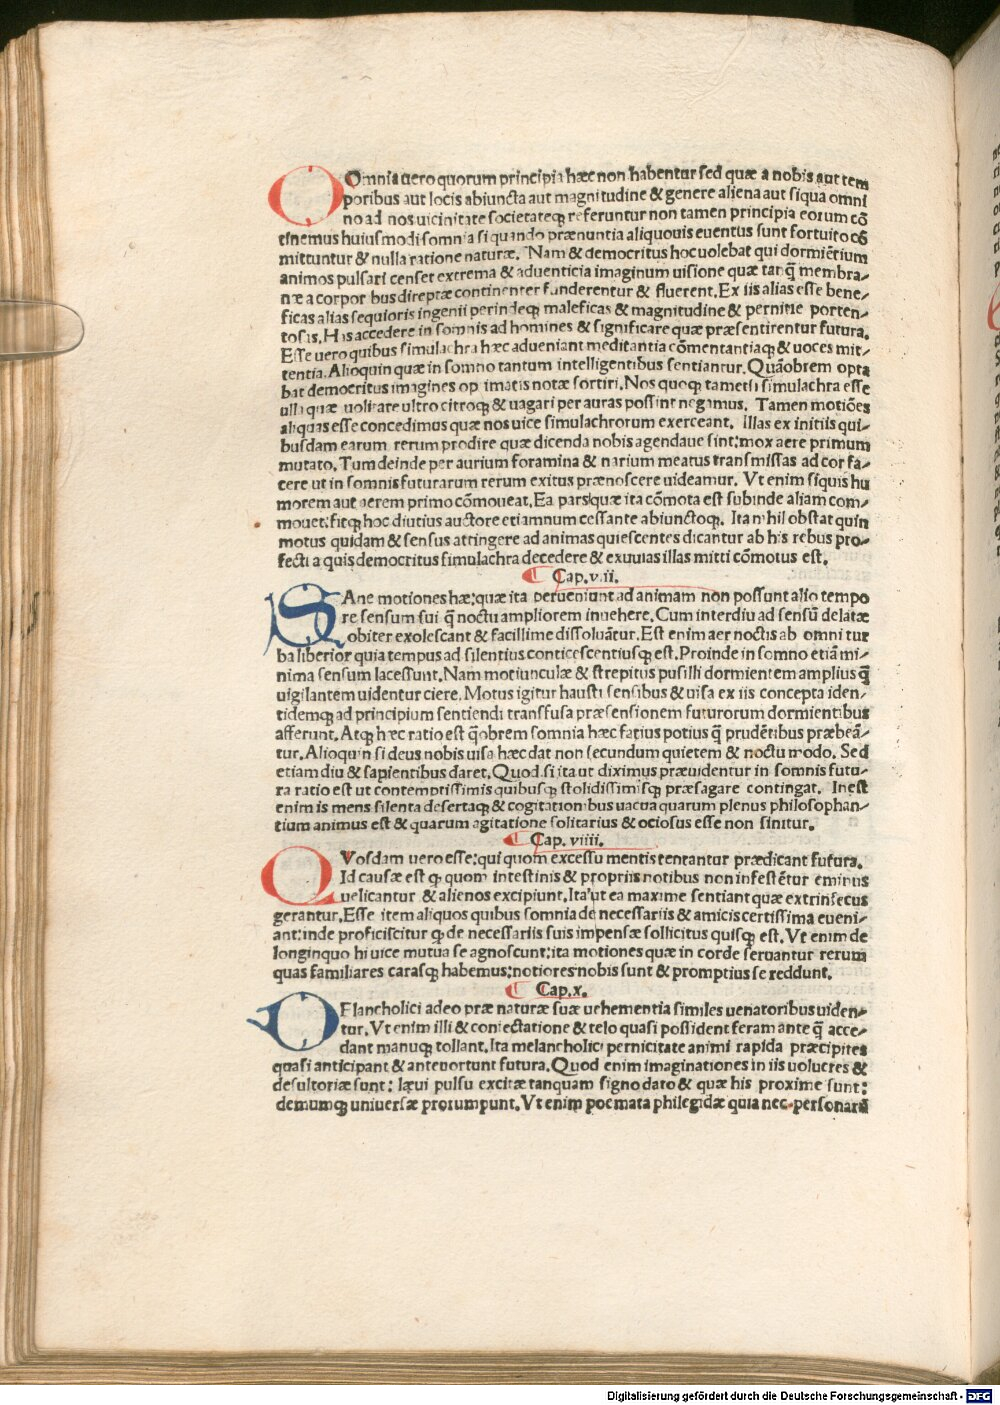 Omnia uero quorum principia hæc non habentur sed quæ a nobis aut tem
poribus aut locis abiuncta aut magnitudine & genere aliena aut siqua omni
no ad nos uicinitate societateq; referuntur non tamen principia eorum cō
tinemus huiusmodi somnia si quando prænuntia aliquouis euentus sunt fortuito cō
mittuntur & nulla ratione naturæ. Nam & democritus hoc uolebat qui dormiētium
animos pulsari censet extrema & aduenticia imaginum uisione quæ tanq̄ membra-
næ a corporibus direptæ continenter funderentur & fluerent. Ex iis alias esse bene-
ficas alias sequioris ingenii perindeq; maleficas & magnitudine & pernitie porten-
tosis. His accedere in somnis ad homines & significare quæ præsentirentur futura.
Esse uero quibus simulachra hæc adueniant meditantia cōmentantiaq; & uoces mit-
tentia. Alioquin quæ in somno tantum intelligentibus sentiantur. Quāobrem opta
bat democritus imagines optimatis notæ sortiri. Nos quoq; tametsi simulachra esse
ulla quæ uolitare ultro citroq; & uagari per auras possint negamus. Tamen motiōes
aliquas esse concedimus quæ nos uice simulachrorum exerceant. illas ex initiis qui-
busdam earum rerum prodire quæ dicenda nobis agendaue sint: mox aere primum
mutato. Tum deinde per aurium foramina & narium meatus transmissas ad cor fa-
cere ut in somnis futurarum rerum exitus prænoscere uideamur. Vt enim siquis hu
morem aut aerem primo cōmoueat. Ea pars quæ ita cōmota est subinde aliam com-
mouet: fitq; hoc diutius auctore etiamnum cessante abiunctoq;. Ita nihil obstat quin
motus quidam & sensus attingere ad animas quiescentes dicantur ab his rebus pro-
fecti a quis democritus simulachra decedere & exuuias illas mitti cōmotus est.
Cap. viii.
SAne motiones hæ: quæ ita perueniunt ad animam non possunt alio tempo
re sensum sui q̄ noctu ampliorem inuehere. Cum interdiu ad sensū delatæ
obiter exolescant & facillime dissoluātur. Est enim aer noctis ab omni tur
ba liberior quia tempus ad silentius conticescentiusq; est. Proinde in somno etiā mi-
nima sensum lacessunt. Nam motiunculæ & strepitus pusilli dormientem amplius q̄
uigilantem uidentur ciere. Motus igitur hausti sensibus & uisa ex iis concepta iden-
tidemq; ad principium sentiendi transfusa præsensionem futurorum dormientibus
afferunt. Atq; hæc ratio est q̄obrem somnia hæc fatius potius q̄ prudētibus præbeā-
tur. Alioquin si deus nobis uisa hæc dat non secundum quietem & noctu modo. Sed
etiam diu & sapientibus daret. Quod si ita ut diximus præuidentur in somnis futu-
ra ratio est ut contemptissimis quibusq; stolidissimisq; præsagare contingat. Inest
enim is mens silenta desertaq; & cogitationibus uacua quarum plenus philosophan-
tium animus est & quarum agitatione solitarius & ociosus esse non sinitur.
Cap. viiii.
QVosdam uero esse: qui quom excessu mentis tentantur prædicant futura.
Id causæ est q; quom intestinis & propriis notibus non infestētur eminus
uelicantur & alienos excipiunt. Ita ut ea maxime sentiant quæ extrinsecus
gerantur. Esse item aliquos quibus somnia de necessariis & amicis certissima eueni-
ant: inde proficiscitur q; de necessariis suis impensæ sollicitus quisq; est. Vt enim de
longinquo hi uice mutua se agnoscunt: ita motiones quæ in corde seruantur rerum
quas familiares carasq; habemus: notiores nobis sunt & promptius se reddunt.
Cap. x.
OElancholici adeo præ naturæ suæ uehementia similes uenatoribus uiden-
tur. Vt enim illi & coniectatione & telo quasi possident feram ante q̄ acce-
dant manuq; tollant. Ita melancholici pernicitate animi rapida præcipites
quasi anticipant & anteuortunt futura. Quod enim imaginationes in iis uolucres &
desultoriæ sunt: læui pulsu excitæ tanquam signo dato & quæ his proxime sunt:
demumq; uniuersæ prorumpunt. Vt enim poemata philegidæ quia nec personarū
Digitalisierung gefördert durch die Deutsche Forschungsgemeinschaft - DFG